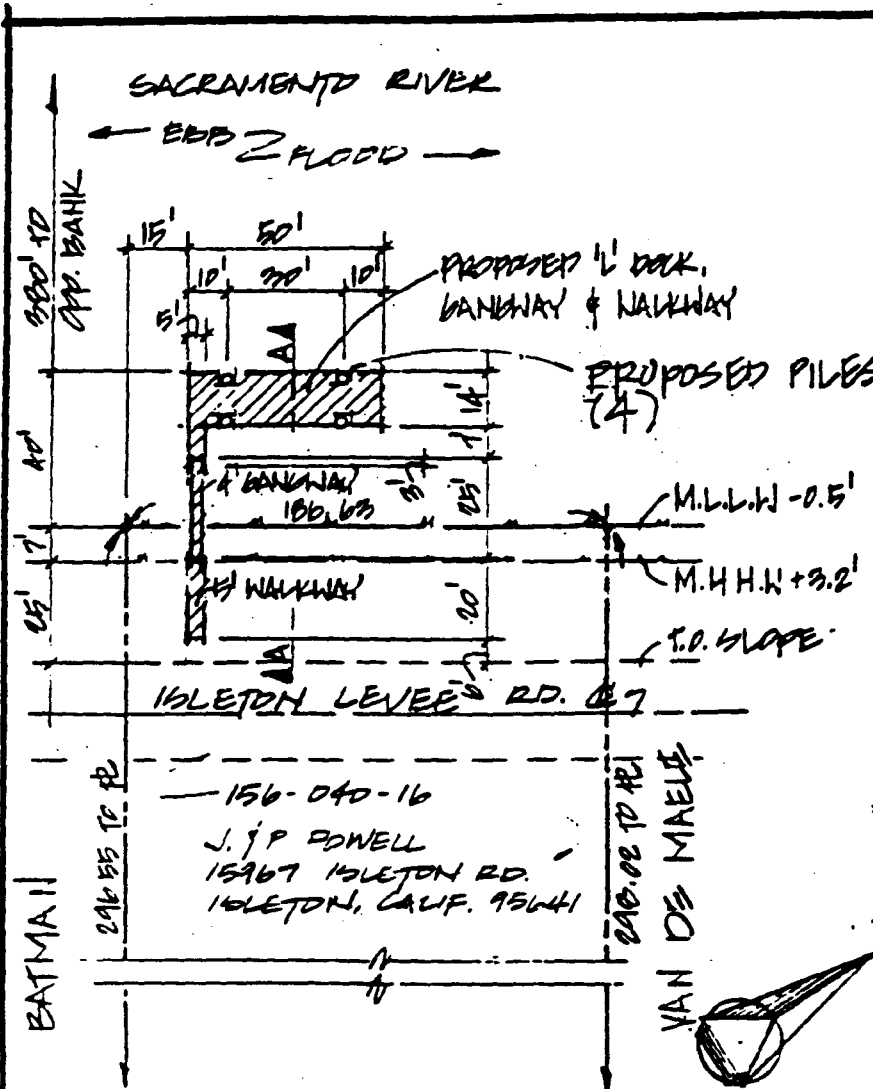 SACRAMENTO RIVER
← EBB
FLOOD →
380' TO
OPP. BANK
15'
50'
10'
30'
10'
5'
A
PROPOSED 'L' DOCK,
GANGWAY & WALKWAY
PROPOSED PILES
(4)
14'
40'
3'
25'
4' GANGWAY
186.63
M.L.L.W -0.5'
17'
M.H.H.W +3.2'
5' WALKWAY
25'
20'
T.O. SLOPE
A
6'
ISLETON LEVEE RD. ℄
156-040-16
J. & P POWELL
15967 ISLETON RD.
ISLETON, CALIF. 95641
296.55 TO ℄
298.02 TO ℄
BATMAN
VAN DE MAELE